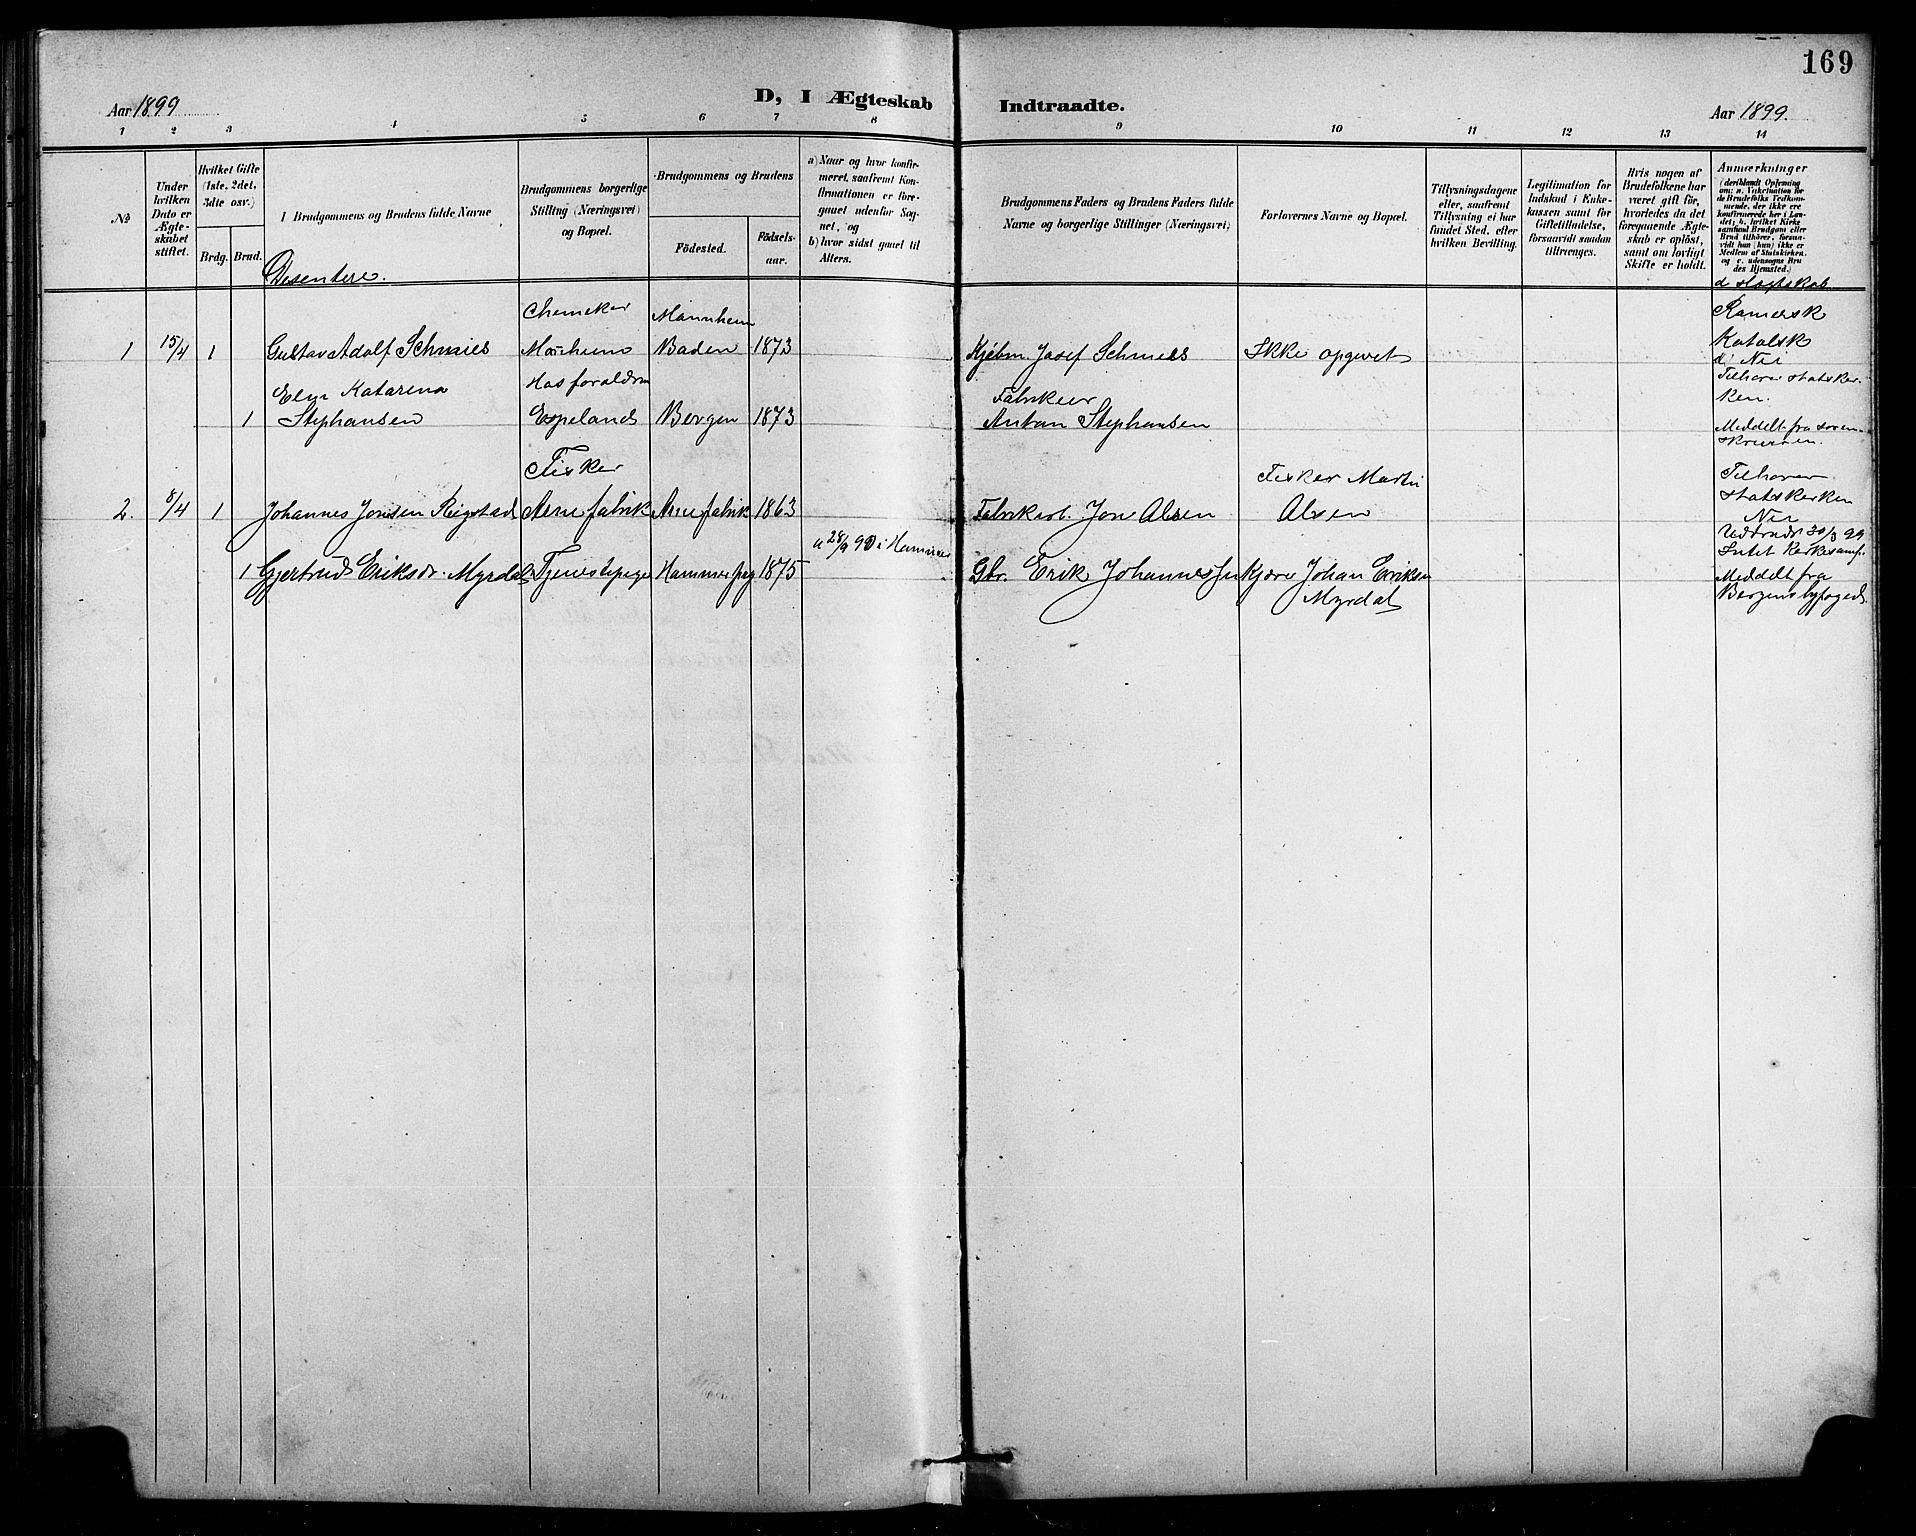 169
Aar 1899 D, I Ægteskab Indtraadte. Aar 1899.
1 2 3 4 5 6 7 8 9 10 11 12 13 14
No
Under hvilken Dato er Ægteskabet stiftet.
Hvilket Gifte (1ste, 2det, 3die osv.)
Brdg. Brud.
Brudgommens og Brudens fulde Navne
Disentere.
Brudgommens borgerlige Stilling (Næringsvei) og Bopæl.
Brudgommens og Brudens
Födested. Födselsaar.
a) Naar og hvor konfirmeret, saafremt Konfirmationen er foregaaet udenfor Sognet, og
b) hvor sidst gaaet til Alters.
Brudgommens Faders og Brudens Faders fulde Navne og borgerlige Stillinger (Næringsvei)
Forlovernes Navne og Bopæl.
Tillysningsdagene eller, saafremt Tillysning ei har fundet Sted, efter hvilken Bevilling.
Legitimation for Indskud i Enkekassen samt for Giftetilladelse, forsaavidt saadan tiltrænges.
Hvis nogen af Brudefolkene har været gift för, hvorledes da det foregaaende Ægteskab er oplöst, samt om lovligt Skifte er holdt.
Anmærkninger
(deriblandt Oplysning om: a. Vakcination för de Brudefolks Vedkommende, der ikke ere konfirmerede her i Landet; b. hvilket Kirkesamfund Brudgom eller Brud tilhører, forsaavidt han (hun) ikke er Medlem af Statskirken, og c. udensogns Brudes Hjemsted.)
Chemeker Mannheim
1 15/4 1 Gustav Adolf Schmies Manheim Baden 1873 Kjöbm. Josef Schmies Ikke opgivet
Romersk Katolsk
d' Nei
Elise Katarena Hos foraldrn Fabrikeier
1 Stephansen Espeland Bergen 1873 Anton Stephansen
Tilhører statskerken.
Meddelt fra sorenskriveren.
Fisker Fisker Martin
2. 8/4 1 Johannes Jonsen Reigstad Arne fabrik Arne fabrik 1863 Fabrikarb. Jon Olsen Olsen
Tilhører statskerken
Nei
a 28/9 90 i Hammer
1 Gjertrud Eriksdr. Myrdal Tjenestepige Hammer prg 1875 Gbr. Erik Johannessen Kjøre Johan Eriksen
Myrdal
Intet kerkesamf.
Meddelt fra
Bergens byfoged.